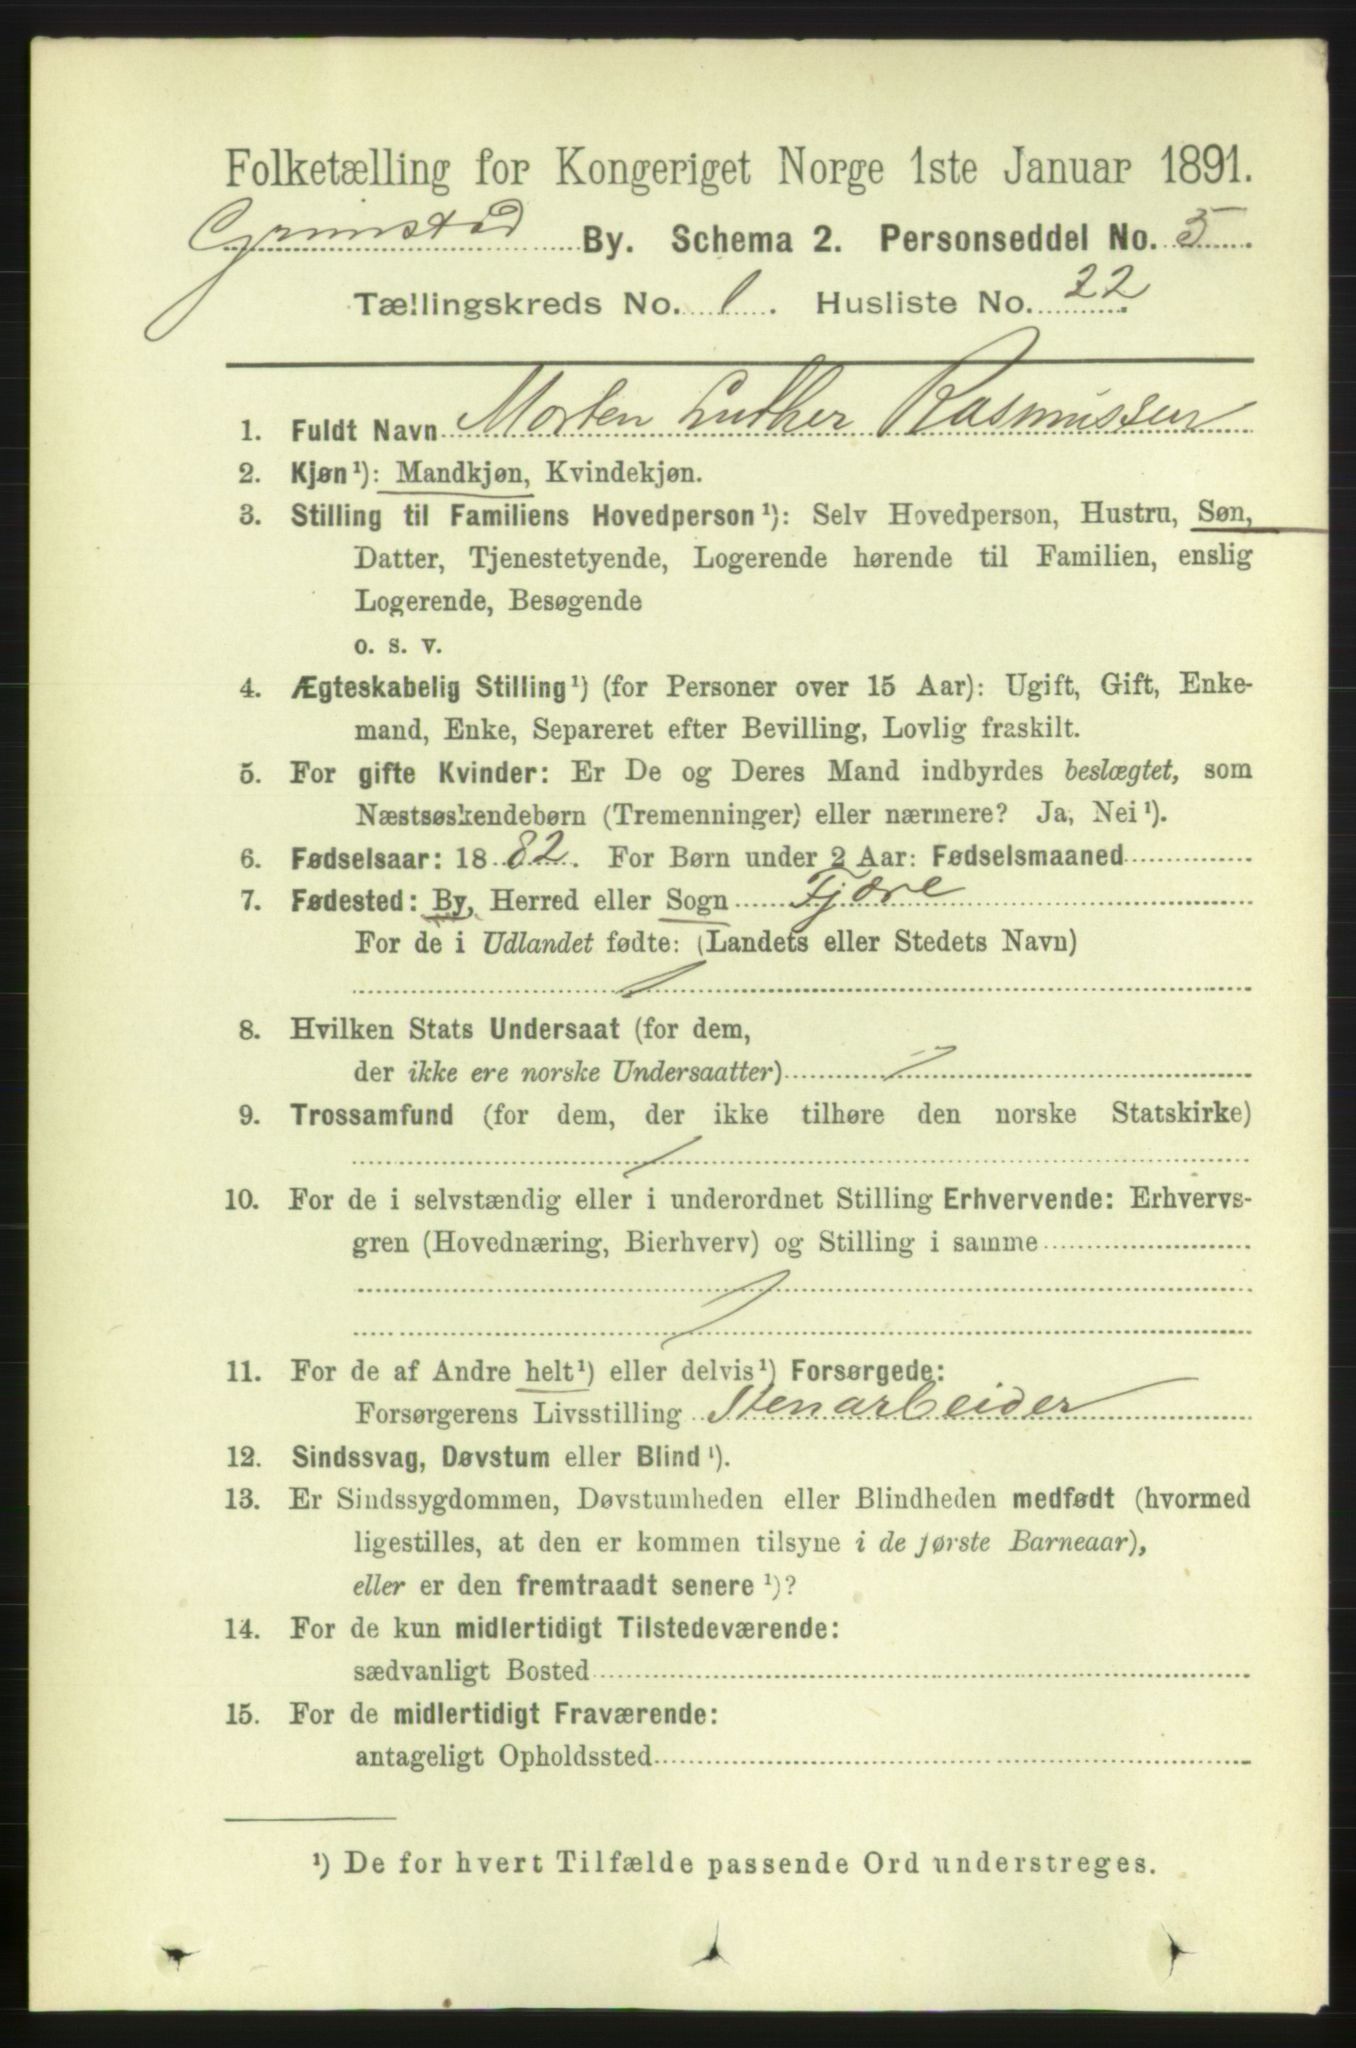 Folketælling for Kongeriget Norge 1ste Januar 1891.
Grimstad By. Schema 2. Personseddel No. 5
Tællingskreds No. 1. Husliste No. 22.
1. Fuldt Navn Morten Luther Rasmussen
2. Kjøn¹): Mandkjøn, Kvindekjøn.
3. Stilling til Familiens Hovedperson¹): Selv Hovedperson, Hustru, Søn,
Datter, Tjenestetyende, Logerende hørende til Familien, enslig
Logerende, Besøgende
o. s. v.
4. Ægteskabelig Stilling¹) (for Personer over 15 Aar): Ugift, Gift, Enke-
mand, Enke, Separeret efter Bevilling, Lovlig fraskilt.
5. For gifte Kvinder: Er De og Deres Mand indbyrdes beslægtet, som
Næstsøskendebørn (Tremenninger) eller nærmere? Ja, Nei¹).
6. Fødselsaar: 1882. For Børn under 2 Aar: Fødselsmaaned
7. Fødested: By, Herred eller Sogn Fjære
For de i Udlandet fødte: (Landets eller Stedets Navn)
8. Hvilken Stats Undersaat (for dem,
der ikke ere norske Undersaatter)
9. Trossamfund (for dem, der ikke tilhøre den norske Statskirke)
10. For de i selvstændig eller i underordnet Stilling Erhvervende: Erhvervs-
gren (Hovednæring, Bierhverv) og Stilling i samme
11. For de af Andre helt¹) eller delvis¹) Forsørgede:
Forsørgerens Livsstilling Stenarbeider
12. Sindssvag, Døvstum eller Blind¹).
13. Er Sindssygdommen, Døvstumheden eller Blindheden medfødt (hvormed
ligestilles, at den er kommen tilsyne i de første Barneaar),
eller er den fremtraadt senere¹)?
14. For de kun midlertidigt Tilstedeværende:
sædvanligt Bosted
15. For de midlertidigt Fraværende:
antageligt Opholdssted
¹) De for hvert Tilfælde passende Ord understreges.